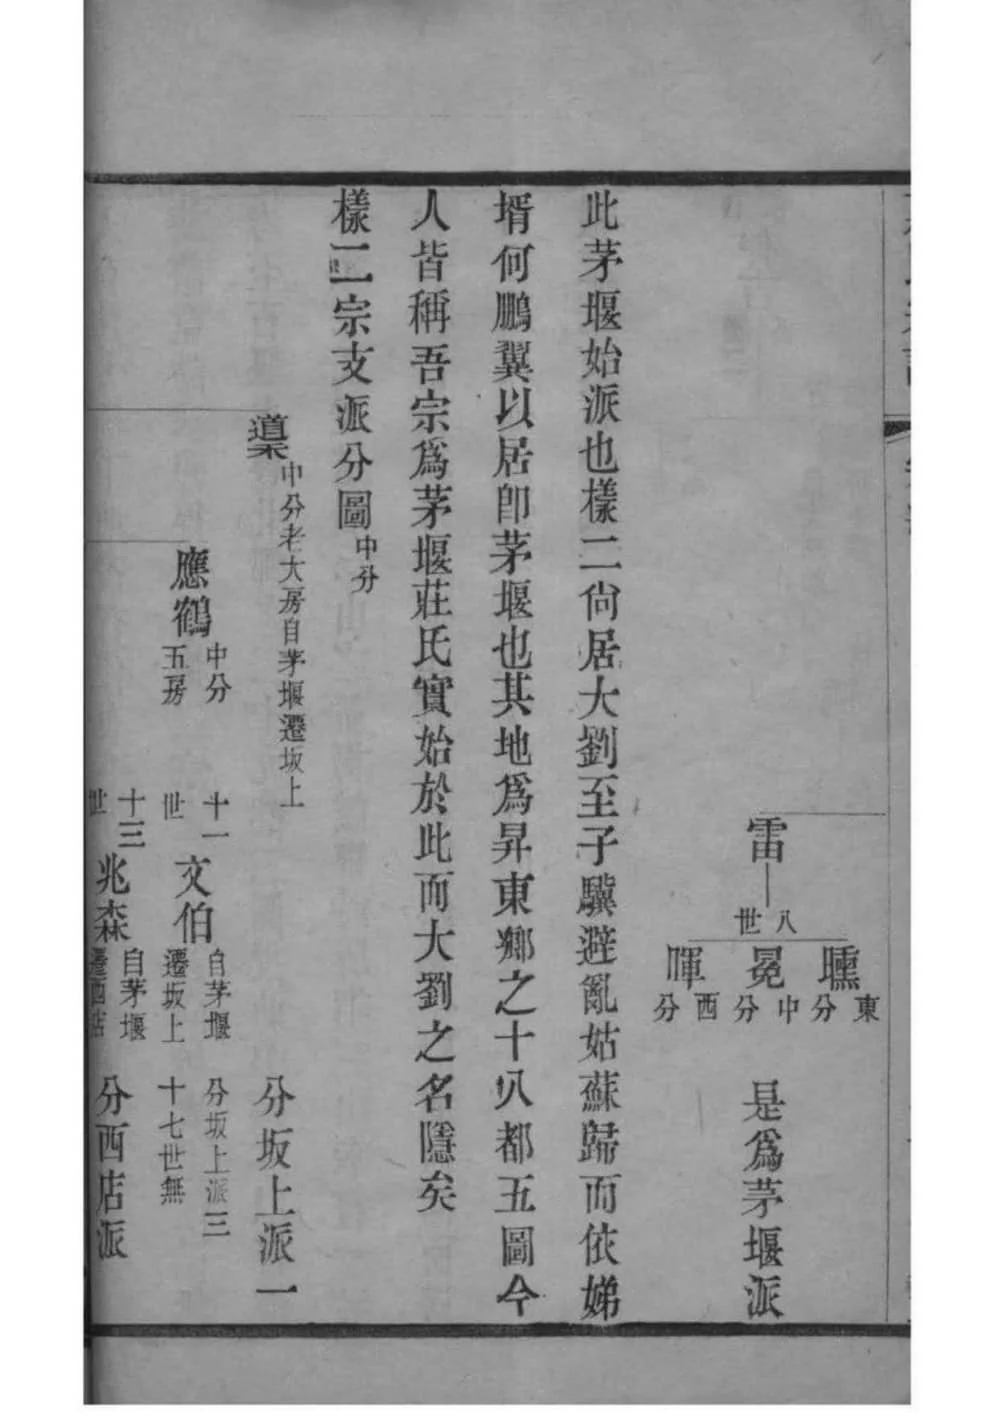 雷
八世
曛 冕 暉
東分 中分 西分
是爲茅堰派
此茅堰始派也樣二尙居大劉至子驥避亂姑蘇歸而依娣
壻何鵬翼以居卽茅堰也其地爲昇東鄉之十八都五圖今
人皆稱吾宗爲茅堰莊氏實始於此而大劉之名隱矣
樣二宗支派分圖中分
中分老大房自茅堰遷坂上
分坂上派一
應鶴
中分
五房
十一
世
文伯
自茅堰
遷坂上
分坂上派三
十七世無
十三
世
兆森
自茅堰
遷西店
分西店派